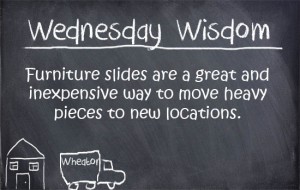 Wednesday Wisdom
Furniture slides are a great and
inexpensive way to move heavy
pieces to new locations.
Wheaton